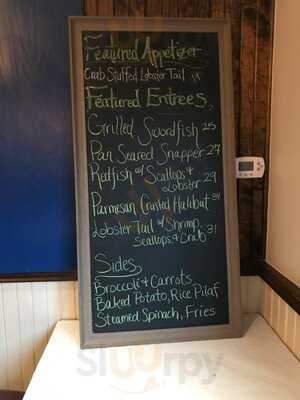 Featured Appetizer
Crab Stuffed Lobster Tail 19
Featured Entrees
Grilled Swordfish 25
Pan Seared Snapper 27
Redfish w/ Scallops &
Lobster 29
Parmesan Crusted Halibut 34
Lobster Tail w/ Shrimp,
Scallops & Crab 31
Sides
Broccoli & Carrots
Baked Potato, Rice Pilaf
Steamed Spinach, Fries
Slurrpy